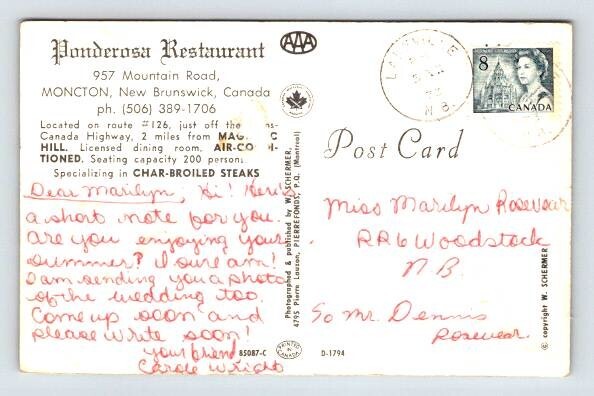 Ponderosa Restaurant
957 Mountain Road,
MONCTON, New Brunswick, Canada
ph. (506) 389-1706
Located on route #126, just off the
Canada Highway, 2 miles from
HILL. Licensed dining room.
TIONED. Seating capacity 200
Specializing in CHAR-BROILED STEAKS
Dear Marilyn, Hi! Here's
a short note for you.
Are you enjoying your
summer? I sure am!
I am sending you a photo
of the wedding too.
Come up soon and
please write soon!
your friend
Carole Wright
AAA
Photographed & published by W. SCHERMER,
4795 Pierre Lauzon, PIERREFONDS, P.Q. (Montreal)
85087-C
PRINTED IN CANADA
D-1794
N.B.
8
CANADA
Post Card
Miss Marilyn Rosevear
RR6 Woodstock
N B.
Mr. Dennis
Rosevear.
© copyright W. SCHERMER